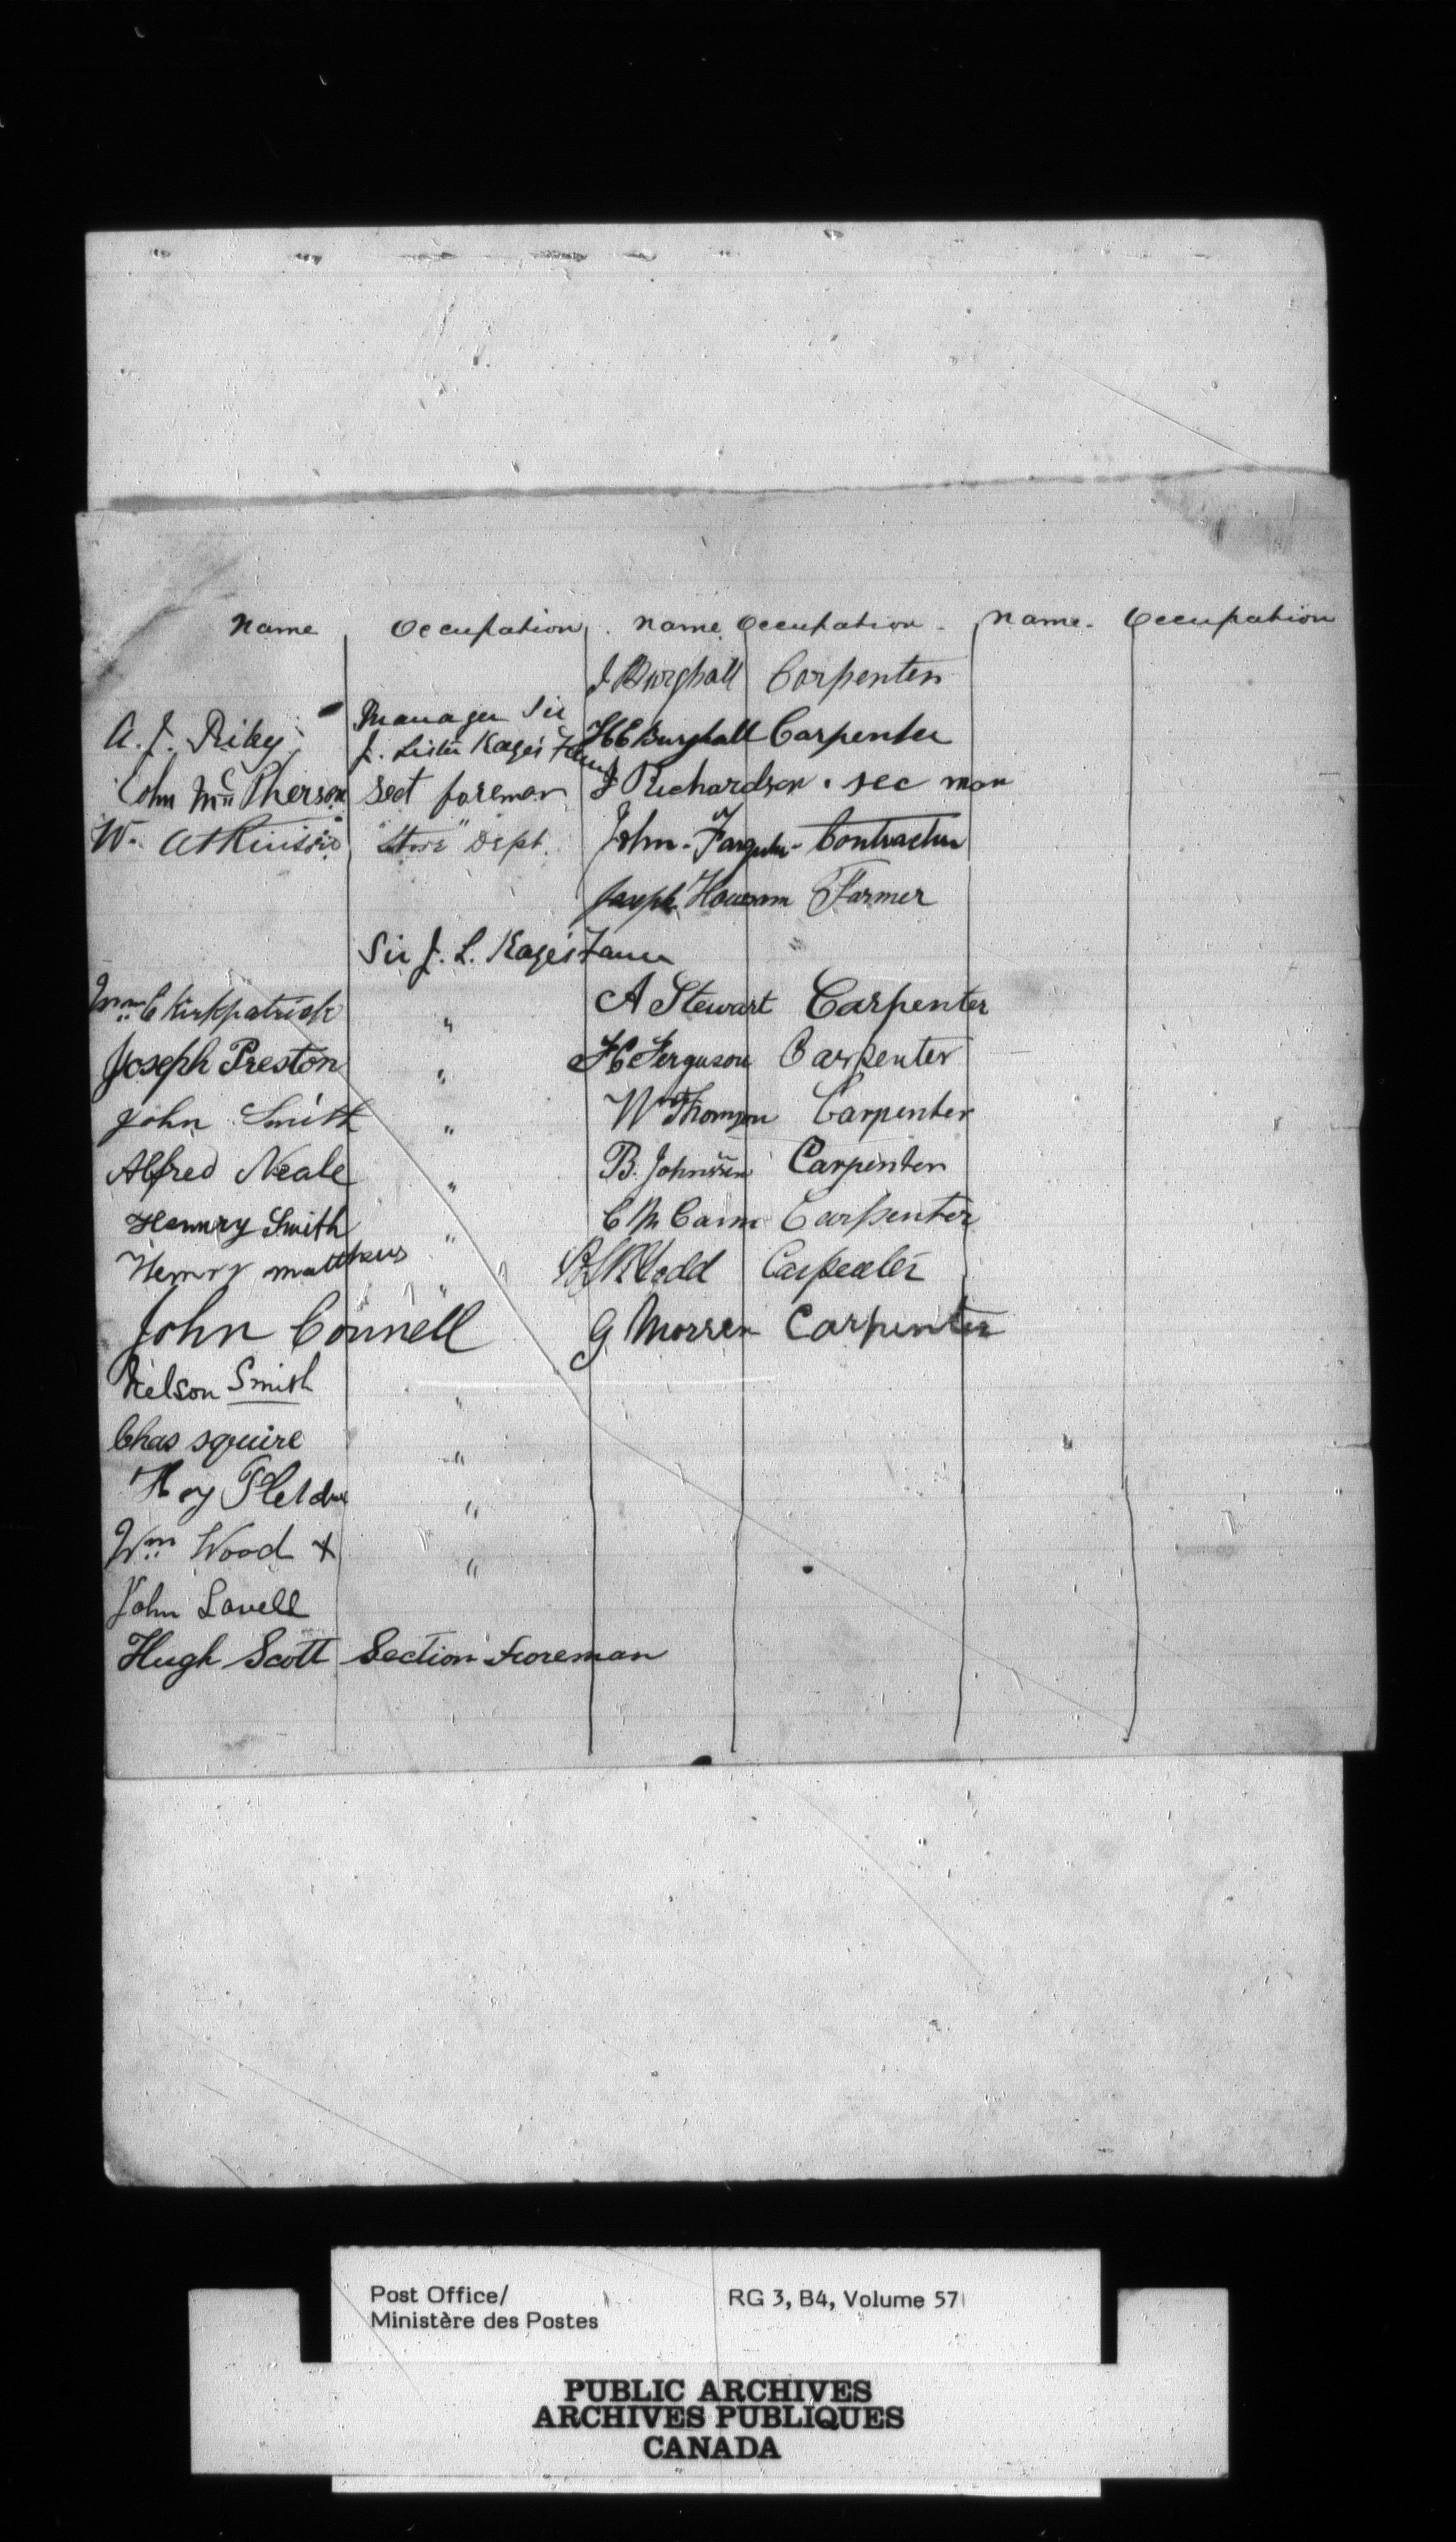 Name Occupation Name Occupation Name. Occupation
J Burghall Carpenter
A. J. Riley Manager Sir
J. Lister Kaye's Farm H C Burghall Carpenter
John McPherson sect foreman J Richardson. sec man
W. Atkinson "Store" Dept. John Contractor
Joseph Farmer
Sir J. L. Kaye's Farm
Wm C Kirkpatrick " A Stewart Carpenter
Joseph Preston " H Ferguson Carpenter
John Smith " W Thomson Carpenter
Alfred Neale " B. Johnson Carpenter
Hennry Smith " Carpenter
Henry Matthews " Carpenter
John Connell G Morren Carpenter
Nelson Smith "
Chas squire "
Roy "
Wm Wood X "
John Lovell
Hugh Scott Section Foreman
Post Office/ RG 3, B4, Volume 57
Ministère des Postes
PUBLIC ARCHIVES
ARCHIVES PUBLIQUES
CANADA